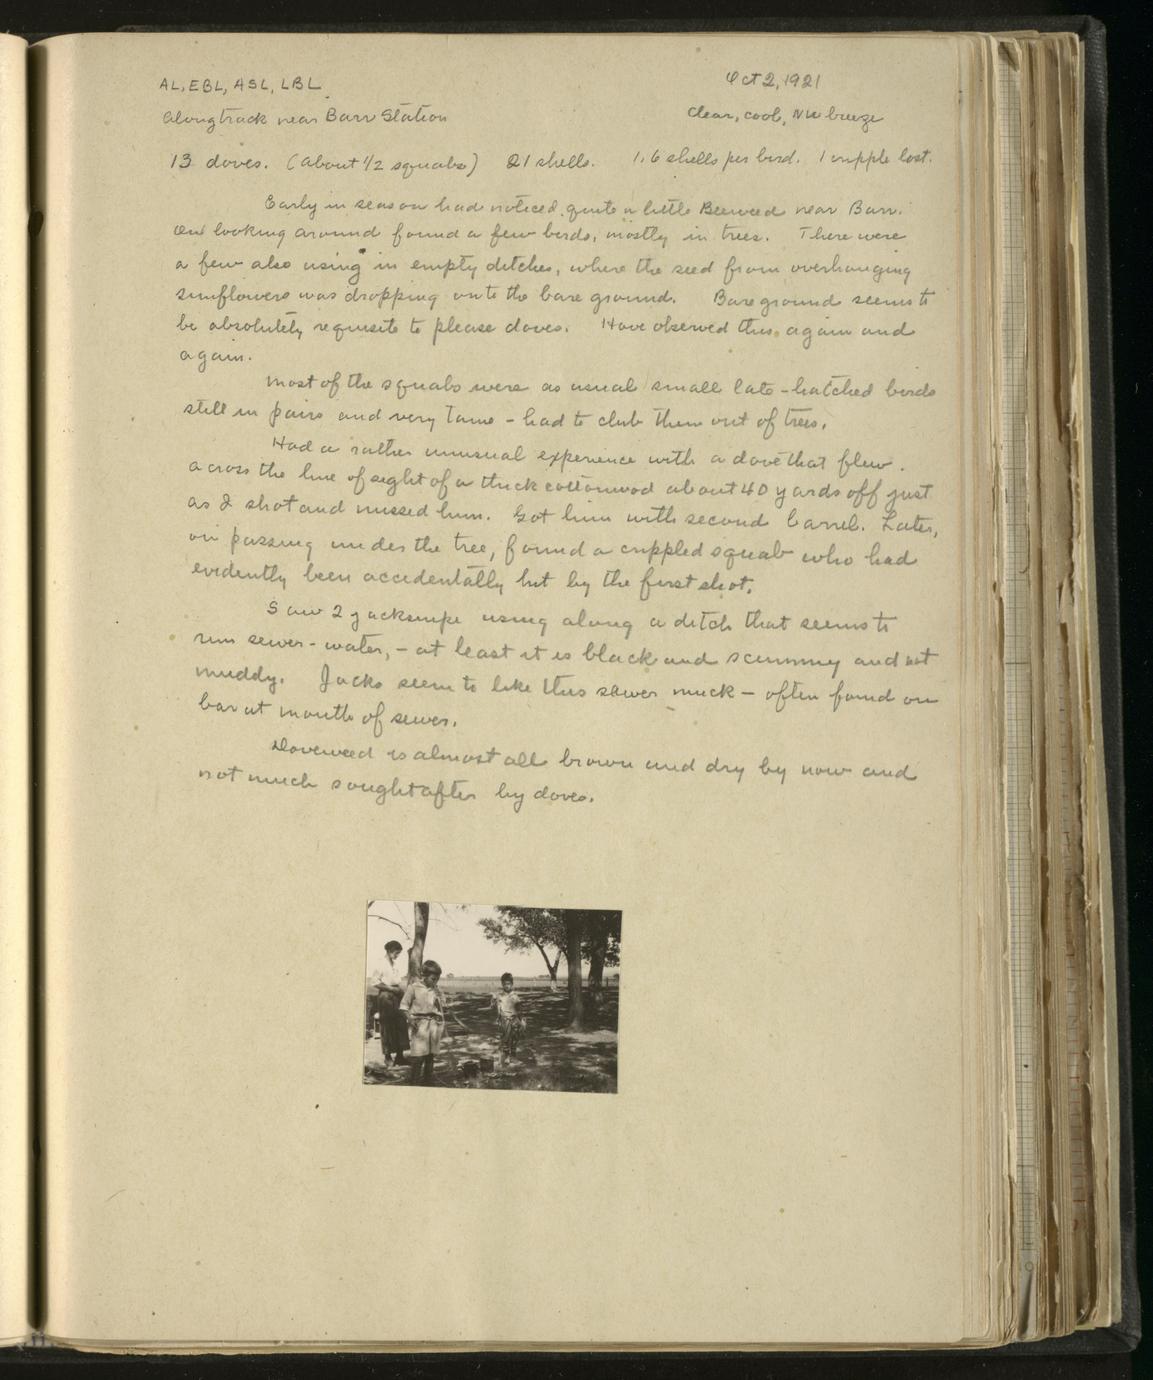 AL, EBL, ASL, LBL
Oct 2, 1921
Along track near Barr Station
Clear, cool, NW breeze
13 doves. (About 1/2 squabs) 21 shells. 1.6 shells per bird. 1 cripple lost.
Early in season had noticed quite a little Beeweed near Barr.
On looking around found a few birds, mostly in trees. There were
a few also using in empty ditches, where the seed from overhanging
sunflowers was dropping onto the bare ground. Bare ground seems to
be absolutely requisite to please doves. Have observed this again and
again.
Most of the squabs were as usual small late-hatched birds
still in pairs and very tame - had to club them out of trees.
Had a rather unusual experience with a dove that flew
across the line of sight of a thick cottonwood about 40 yards off just
as I shot and missed him. Got him with second barrel. Later,
on passing under the tree, found a crippled squab who had
evidently been accidentally hit by the first shot.
Saw 2 jacksnipe using along a ditch that seems to
run sewer-water, - at least it is black and scummy and not
muddy. Jacks seem to like this sewer muck - often found on
bar at mouth of sewer.
Doveweed is almost all brown and dry by now and
not much sought after by doves.